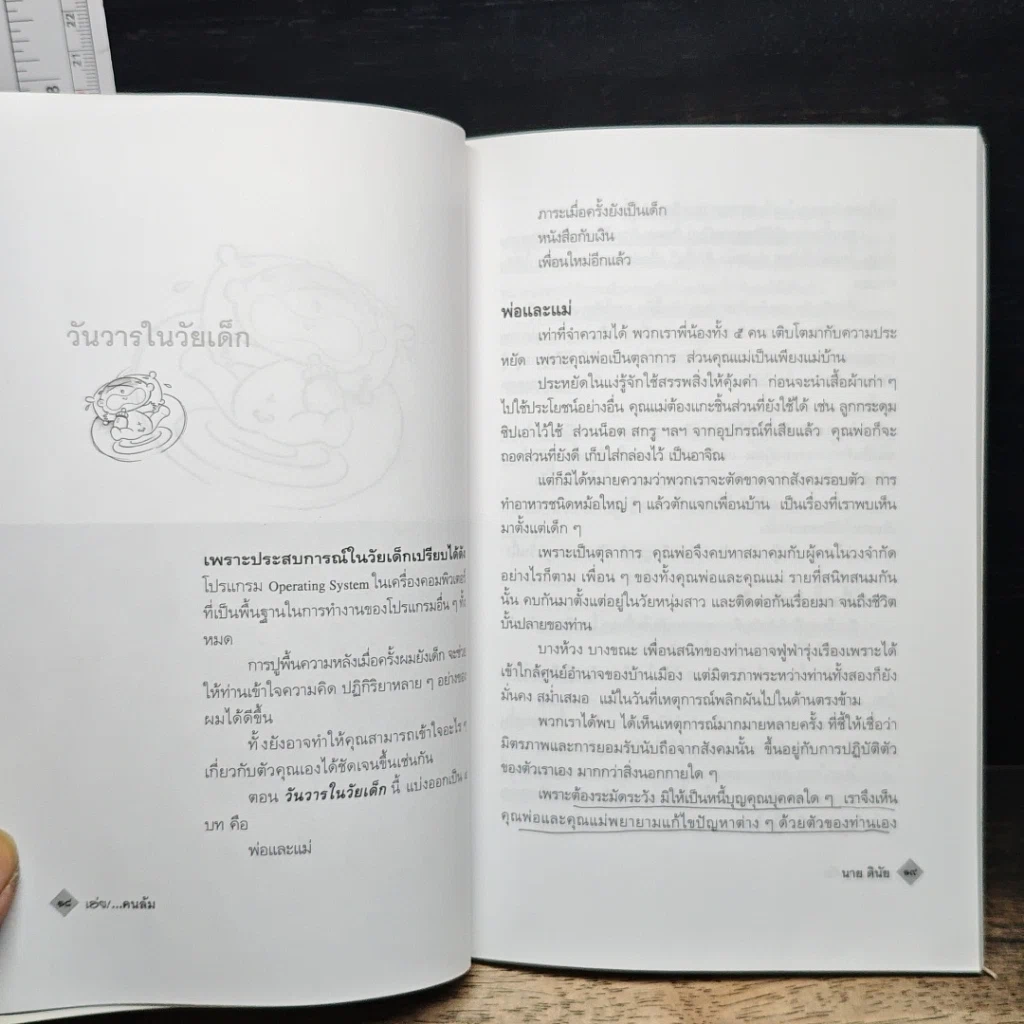 22
21
8
วันวารในวัยเด็ก
เพราะประสบการณ์ในวัยเด็กเปรียบได้ดัง
โปรแกรม Operating System ในเครื่องคอมพิวเตอร์
ที่เป็นพื้นฐานในการทำงานของโปรแกรมอื่น ๆ ทั้ง
หมด
การปูพื้นความหลังเมื่อครั้งผมยังเด็ก จะช่วย
ให้ท่านเข้าใจความคิด ปฏิกิริยาหลาย ๆ อย่างของ
ผมได้ดีขึ้น
ทั้งยังอาจทำให้คุณสามารถเข้าใจอะไร ๆ
เกี่ยวกับตัวคุณเองได้ชัดเจนขึ้นเช่นกัน
ตอน วันวารในวัยเด็ก นี้ แบ่งออกเป็น
บท คือ
พ่อและแม่
๑๘ ...คนล้ม
ภาระเมื่อครั้งยังเป็นเด็ก
หนังสือกับเงิน
เพื่อนใหม่อีกแล้ว
พ่อและแม่
เท่าที่จำความได้ พวกเราพี่น้องทั้ง ๕ คน เติบโตมากับความประ
หยัด เพราะคุณพ่อเป็นตุลาการ ส่วนคุณแม่เป็นเพียงแม่บ้าน
ประหยัดในแง่รู้จักใช้สรรพสิ่งให้คุ้มค่า ก่อนจะนำเสื้อผ้าเก่า ๆ
ไปใช้ประโยชน์อย่างอื่น คุณแม่ต้องแกะชิ้นส่วนที่ยังใช้ได้ เช่น ลูกกระดุม
ซิปเอาไว้ใช้ ส่วนน็อต สกรู ฯลฯ จากอุปกรณ์ที่เสียแล้ว คุณพ่อก็จะ
ถอดส่วนที่ยังดี เก็บใส่กล่องไว้ เป็นอาจิณ
แต่ก็มิได้หมายความว่าพวกเราจะตัดขาดจากสังคมรอบตัว การ
ทำอาหารชนิดหม้อใหญ่ ๆ แล้วตักแจกเพื่อนบ้าน เป็นเรื่องที่เราพบเห็น
มาตั้งแต่เด็ก ๆ
เพราะเป็นตุลาการ คุณพ่อจึงคบหาสมาคมกับผู้คนในวงจำกัด
อย่างไรก็ตาม เพื่อน ๆ ของทั้งคุณพ่อและคุณแม่ รายที่สนิทสนมกัน
นั้น คบกันมาตั้งแต่อยู่ในวัยหนุ่มสาว และติดต่อกันเรื่อยมา จนถึงชีวิต
บั้นปลายของท่าน
บางห้วง บางขณะ เพื่อนสนิทของท่านอาจฟูฟ่ารุ่งเรืองเพราะได้
เข้าใกล้ศูนย์อำนาจของบ้านเมือง แต่มิตรภาพระหว่างท่านทั้งสองก็ยัง
มั่นคง สม่ำเสมอ แม้ในวันที่เหตุการณ์พลิกผันไปในด้านตรงข้าม
พวกเราได้พบ ได้เห็นเหตุการณ์มากมายหลายครั้ง ที่ชี้ให้เชื่อว่า
มิตรภาพและการยอมรับนับถือจากสังคมนั้น ขึ้นอยู่กับการปฏิบัติตัว
ของตัวเราเอง มากกว่าสิ่งนอกกายใด ๆ
เพราะต้องระมัดระวัง มิให้เป็นหนี้บุญคุณบุคคลใด ๆ เราจึงเห็น
คุณพ่อและคุณแม่พยายามแก้ไขปัญหาต่าง ๆ ด้วยตัวของท่านเอง
นาย ดินัย ๑๙